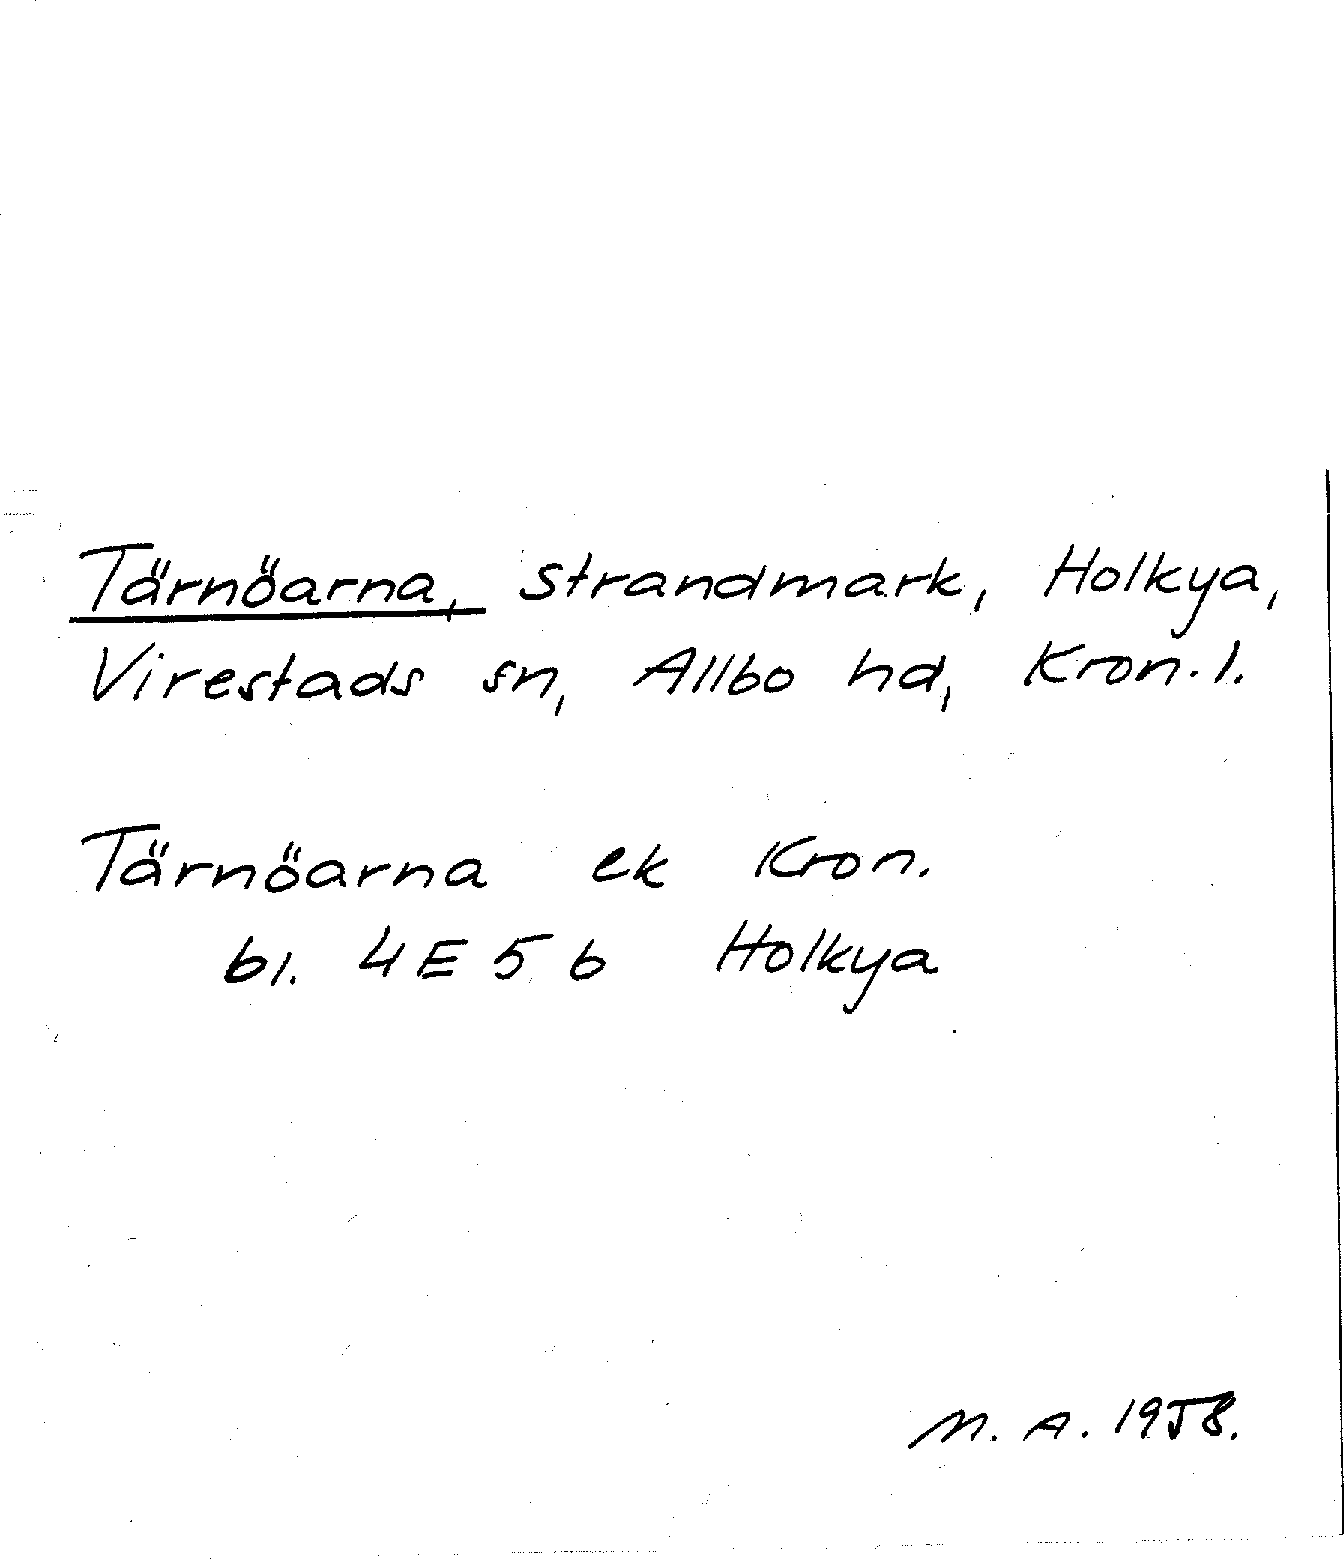 Tärnöarna, strandmark, Holkya,
Virestads sn, Allbo hd, Kron. l.
Tärnöarna ek Kron.
bl. 4E5b Holkya
M. A. 1958.